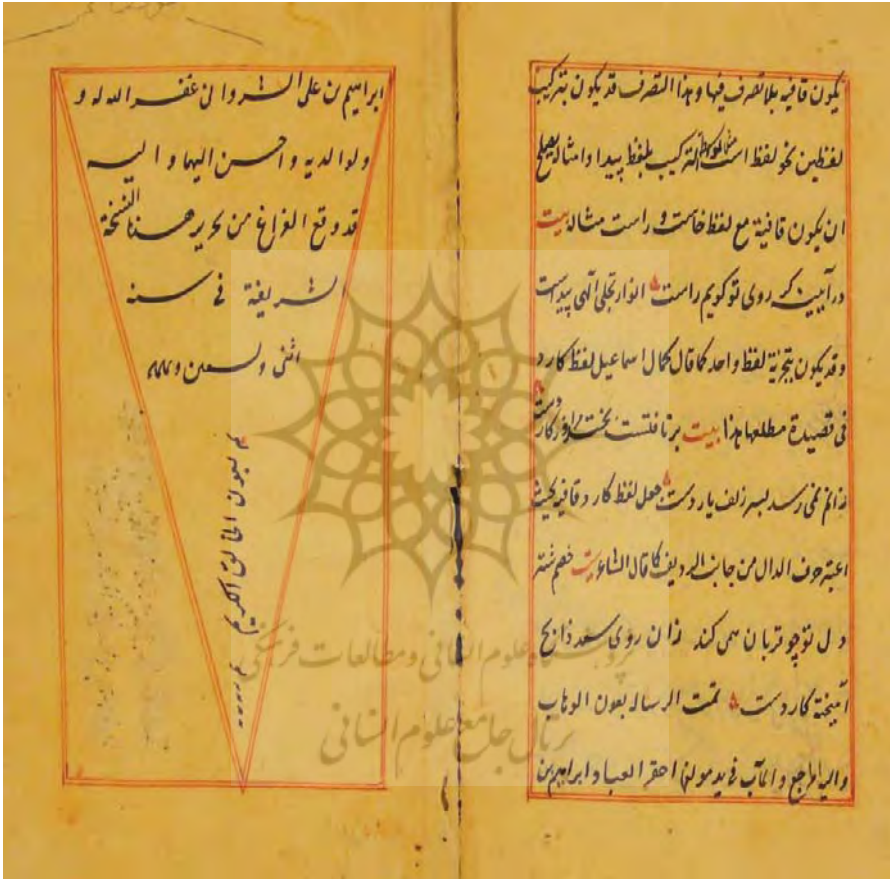 یکون قافیه بلا تصرف فیها و هذا التصرف قد یکون بترکیب
لفظین نحو لفظ است الترکیب بلفظ پیدا و امثاله یصلح
ان یکون قافیة مع لفظ خاست و راست مثاله بیت
در آیینه کر روی تو کویم راست انوار تجلی الهی پیداست
و قد یکون بتجزیة لفظ واحد کما قال کمال اسماعیل لفظ کارد
فی قصیدة مطلعها هذا بیت برتافتست بخت مرا روزکار دست
زانم نمی رسد بسر زلف یار دست جعل لفظ کارد قافیه بحیث
اعتبر حرف الدال من جانب الردیف کما قال الشاعر بیت خصم شتر
دل تو چو قربان همی کند زان روی سعد ذابح
آمیخته کارد دست تمت الرساله بعون الوهاب
والیه المرجع و المآب فی ید مولفها احقر العباد ابراهیم بن
ابراهیم بن علی الشروانی غفر الله له و
و لوالدیه و احسن الیهما و الیه
قد وقع الفراغ من تحریر هذه النسخة
الشریفة فی سنه
اثنی و
بعون الخالق الکریم
پژوهشگاه علوم انسانی و مطالعات فرهنگی
پرتال جامع علوم انسانی